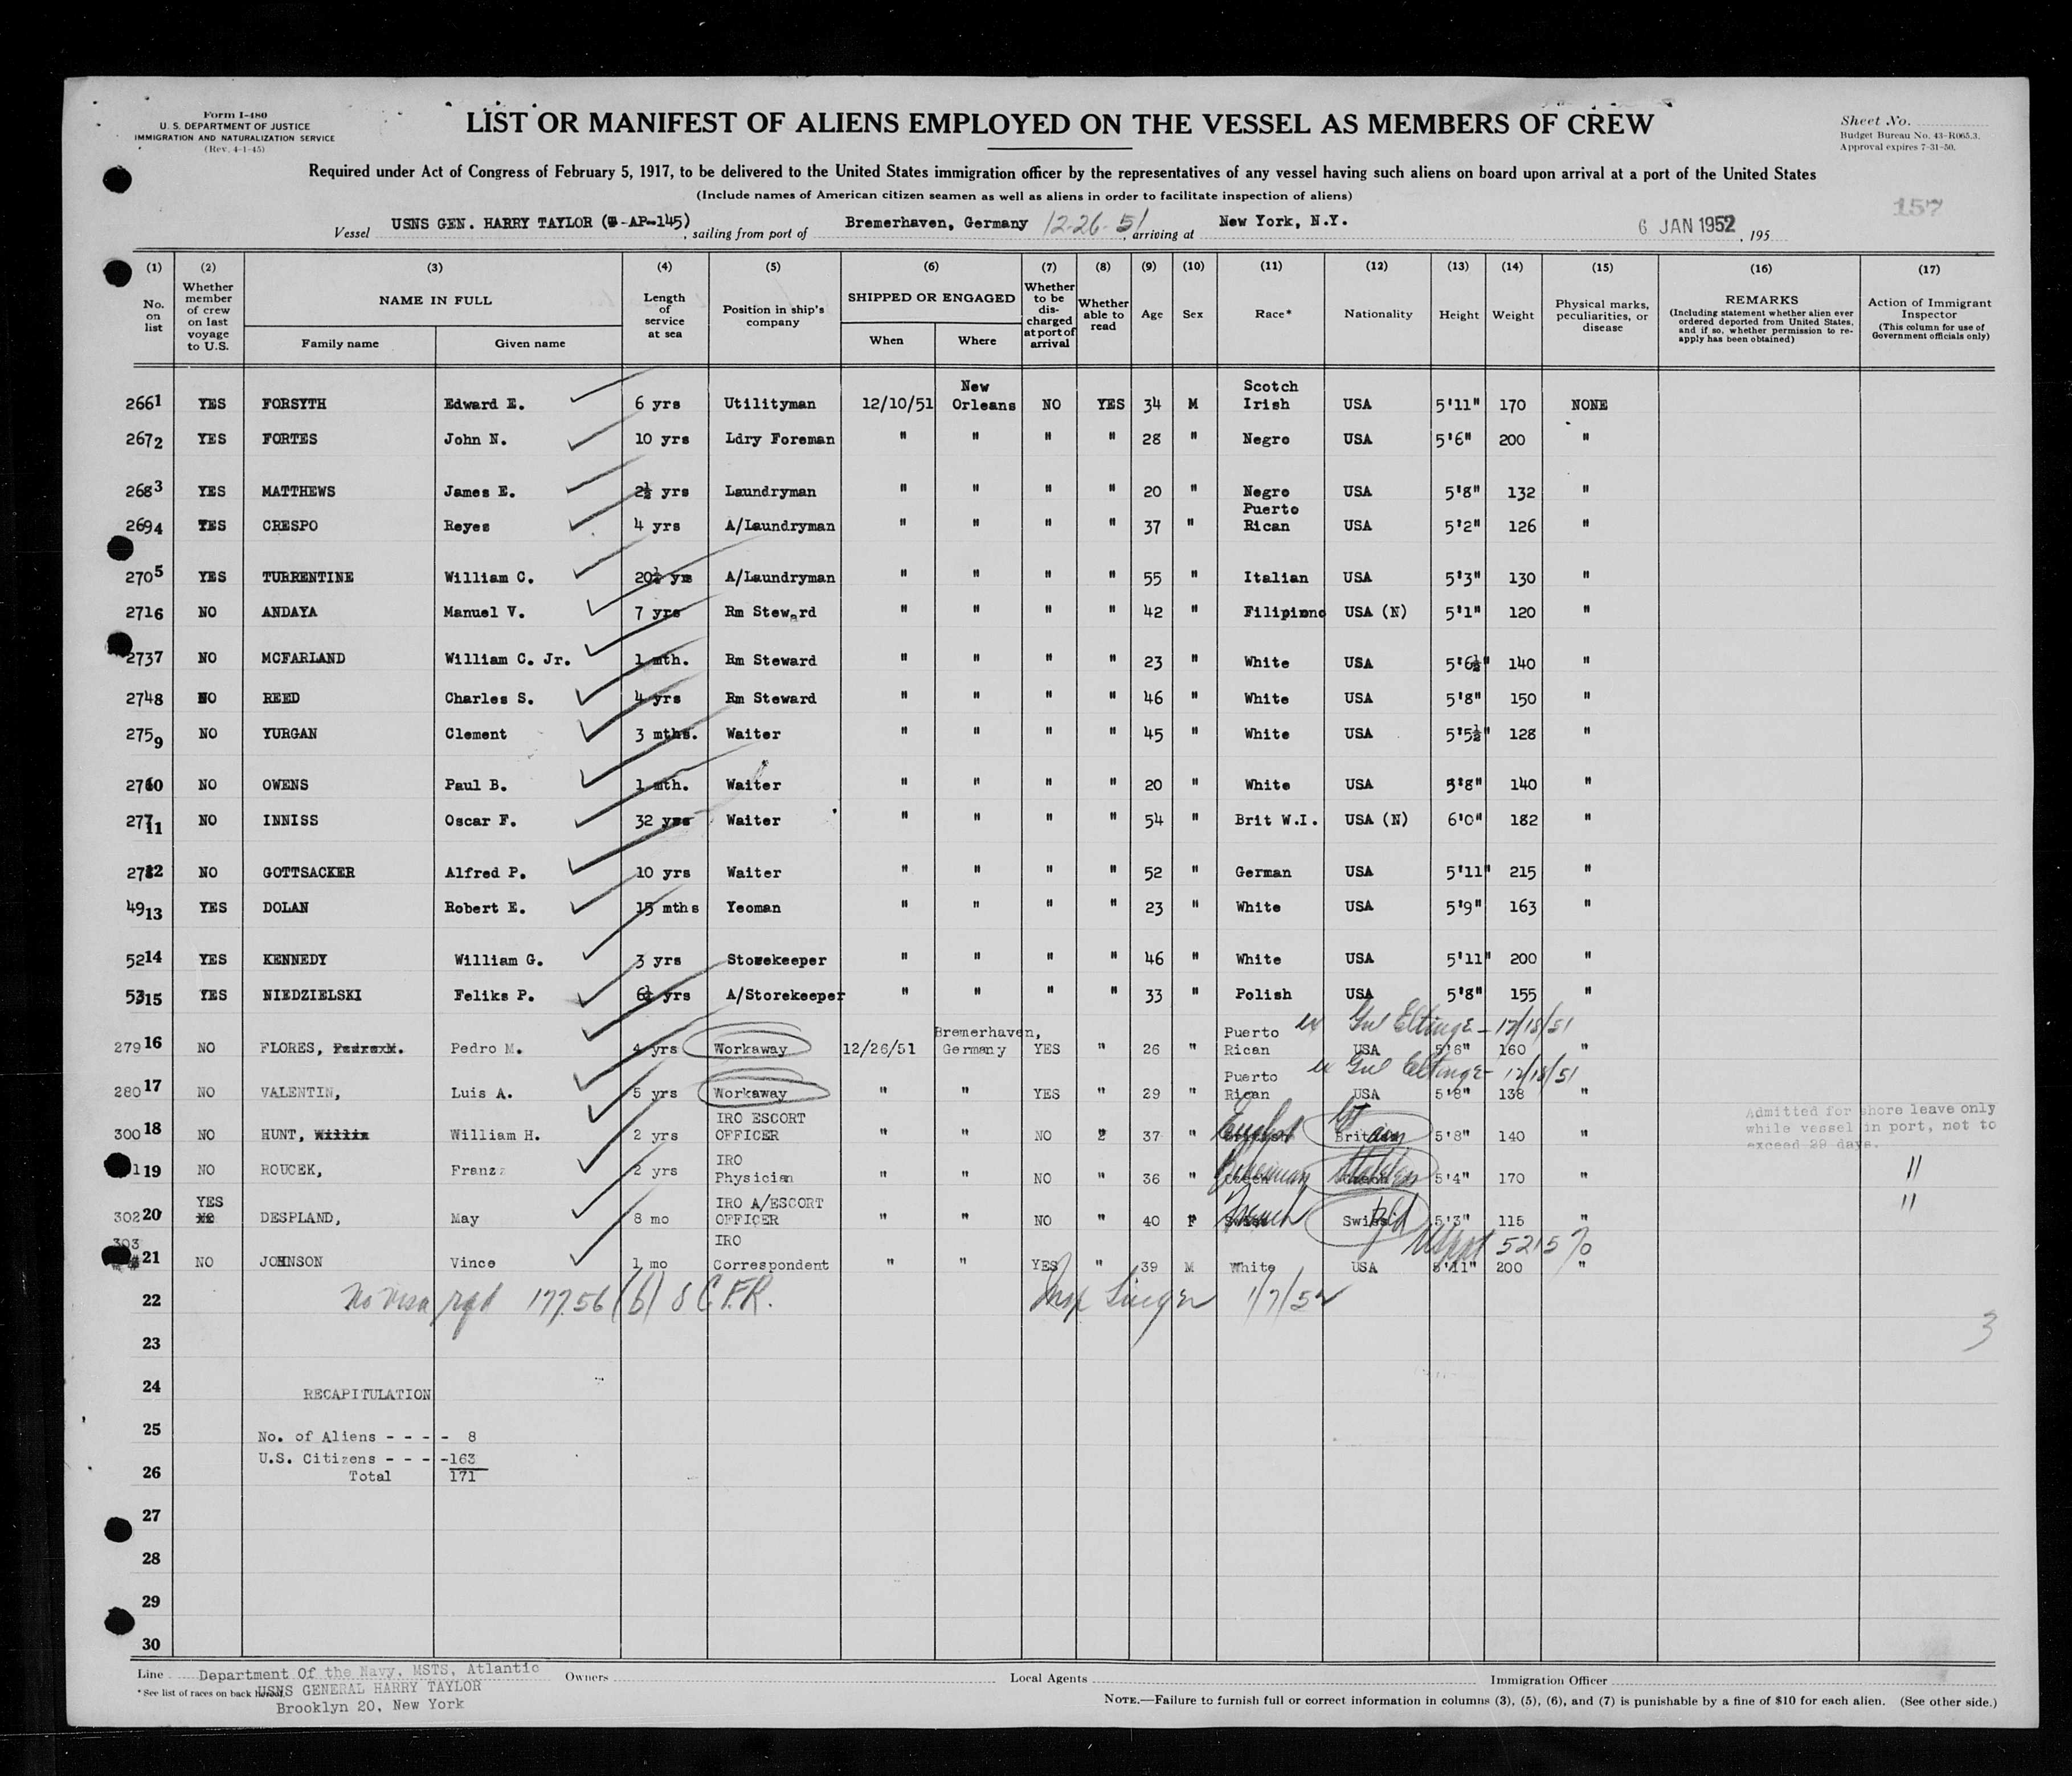 Form I-480
U. S. DEPARTMENT OF JUSTICE
IMMIGRATION AND NATURALIZATION SERVICE
(Rev. 4-1-45)
LIST OR MANIFEST OF ALIENS EMPLOYED ON THE VESSEL AS MEMBERS OF CREW
Sheet No.
Budget Bureau No. 43-R065.3.
Approval expires 7-31-50.
Required under Act of Congress of February 5, 1917, to be delivered to the United States immigration officer by the representatives of any vessel having such aliens on board upon arrival at a port of the United States
(Include names of American citizen seamen as well as aliens in order to facilitate inspection of aliens)
157
Vessel USNS GEN. HARRY TAYLOR (T-AP-145), sailing from port of Bremerhaven, Germany 12-26-51, arriving at New York, N.Y. 6 JAN 1952, 195
(1) (2) (3) (4) (5) (6) (7) (8) (9) (10) (11) (12) (13) (14) (15) (16) (17)
No. on list
Whether member of crew on last voyage to U.S.
NAME IN FULL
Family name Given name
Length of service at sea
Position in ship's company
SHIPPED OR ENGAGED
When Where
Whether to be discharged at port of arrival
Whether able to read
Age
Sex
Race*
Nationality
Height
Weight
Physical marks, peculiarities, or disease
REMARKS
(Including statement whether alien ever ordered deported from United States, and if so, whether permission to reapply has been obtained)
Action of Immigrant Inspector
(This column for use of Government officials only)
266 1 YES FORSYTH Edward E. 6 yrs Utilityman 12/10/51 New Orleans NO YES 34 M Scotch Irish USA 5'11" 170 NONE
267 2 YES FORTES John N. 10 yrs Ldry Foreman " " " " 28 " Negro USA 5'6" 200 "
268 3 YES MATTHEWS James E. 2½ yrs Laundryman " " " " 20 " Negro USA 5'8" 132 "
269 4 YES CRESPO Reyes 4 yrs A/Laundryman " " " " 37 " Puerto Rican USA 5'2" 126 "
270 5 YES TURRENTINE William C. 20½ yrs A/Laundryman " " " " 55 " Italian USA 5'3" 130 "
271 6 NO ANDAYA Manuel V. 7 yrs Rm Steward " " " " 42 " Filipino USA (N) 5'1" 120 "
273 7 NO MCFARLAND William C. Jr. 1 mth. Rm Steward " " " " 23 " White USA 5'6½" 140 "
274 8 NO REED Charles S. 4 yrs Rm Steward " " " " 46 " White USA 5'8" 150 "
275 9 NO YURGAN Clement 3 mths. Waiter " " " " 45 " White USA 5'5½" 128 "
276 10 NO OWENS Paul B. 1 mth. Waiter " " " " 20 " White USA 5'8" 140 "
277 11 NO INNISS Oscar F. 32 yrs Waiter " " " " 54 " Brit W.I. USA (N) 6'0" 182 "
278 12 NO GOTTSACKER Alfred P. 10 yrs Waiter " " " " 52 " German USA 5'11" 215 "
49 13 YES DOLAN Robert E. 15 mths Yeoman " " " " 23 " White USA 5'9" 163 "
52 14 YES KENNEDY William G. 3 yrs Storekeeper " " " " 46 " White USA 5'11" 200 "
53 15 YES NIEDZIELSKI Feliks P. 6½ yrs A/Storekeeper " " " " 33 " Polish USA 5'8" 155 "
ex Gnl Eltinge - 12/18/51
279 16 NO FLORES, Pedro M. Pedro M. 4 yrs Workaway 12/26/51 Bremerhaven, Germany YES " 26 " Puerto Rican USA 5'6" 160 "
ex Gnl Eltinge - 12/18/51
280 17 NO VALENTIN, Luis A. 5 yrs Workaway " " YES " 29 " Puerto Rican USA 5'8" 138 "
300 18 NO HUNT, Willia William H. 2 yrs IRO ESCORT OFFICER " " NO " 37 " British 5'8" 140 "
Admitted for shore leave only
while vessel in port, not to
exceed 29 days.
19 NO ROUCEK, Franz 2 yrs IRO Physician " " NO " 36 " 5'4" 170 " "
302 20 YES NO DESPLAND, May 8 mo IRO A/ESCORT OFFICER " " NO " 40 F French Swiss 5'3" 115 " "
303 21 NO JOHNSON Vince 1 mo IRO Correspondent " " YES " 39 M White USA 5'11" 200 "
22 No visa rqd 177.56 (b) 8 C.F.R. 1/7/52
3
23
24
RECAPITULATION
25
No. of Aliens - - - - 8
U.S. Citizens - - - -163
26
Total 171
27
28
29
30
Line Department Of the Navy, MSTS, Atlantic Owners Local Agents Immigration Officer
*See list of races on back hereof. USNS GENERAL HARRY TAYLOR
Brooklyn 20, New York
NOTE.—Failure to furnish full or correct information in columns (3), (5), (6), and (7) is punishable by a fine of $10 for each alien. (See other side.)